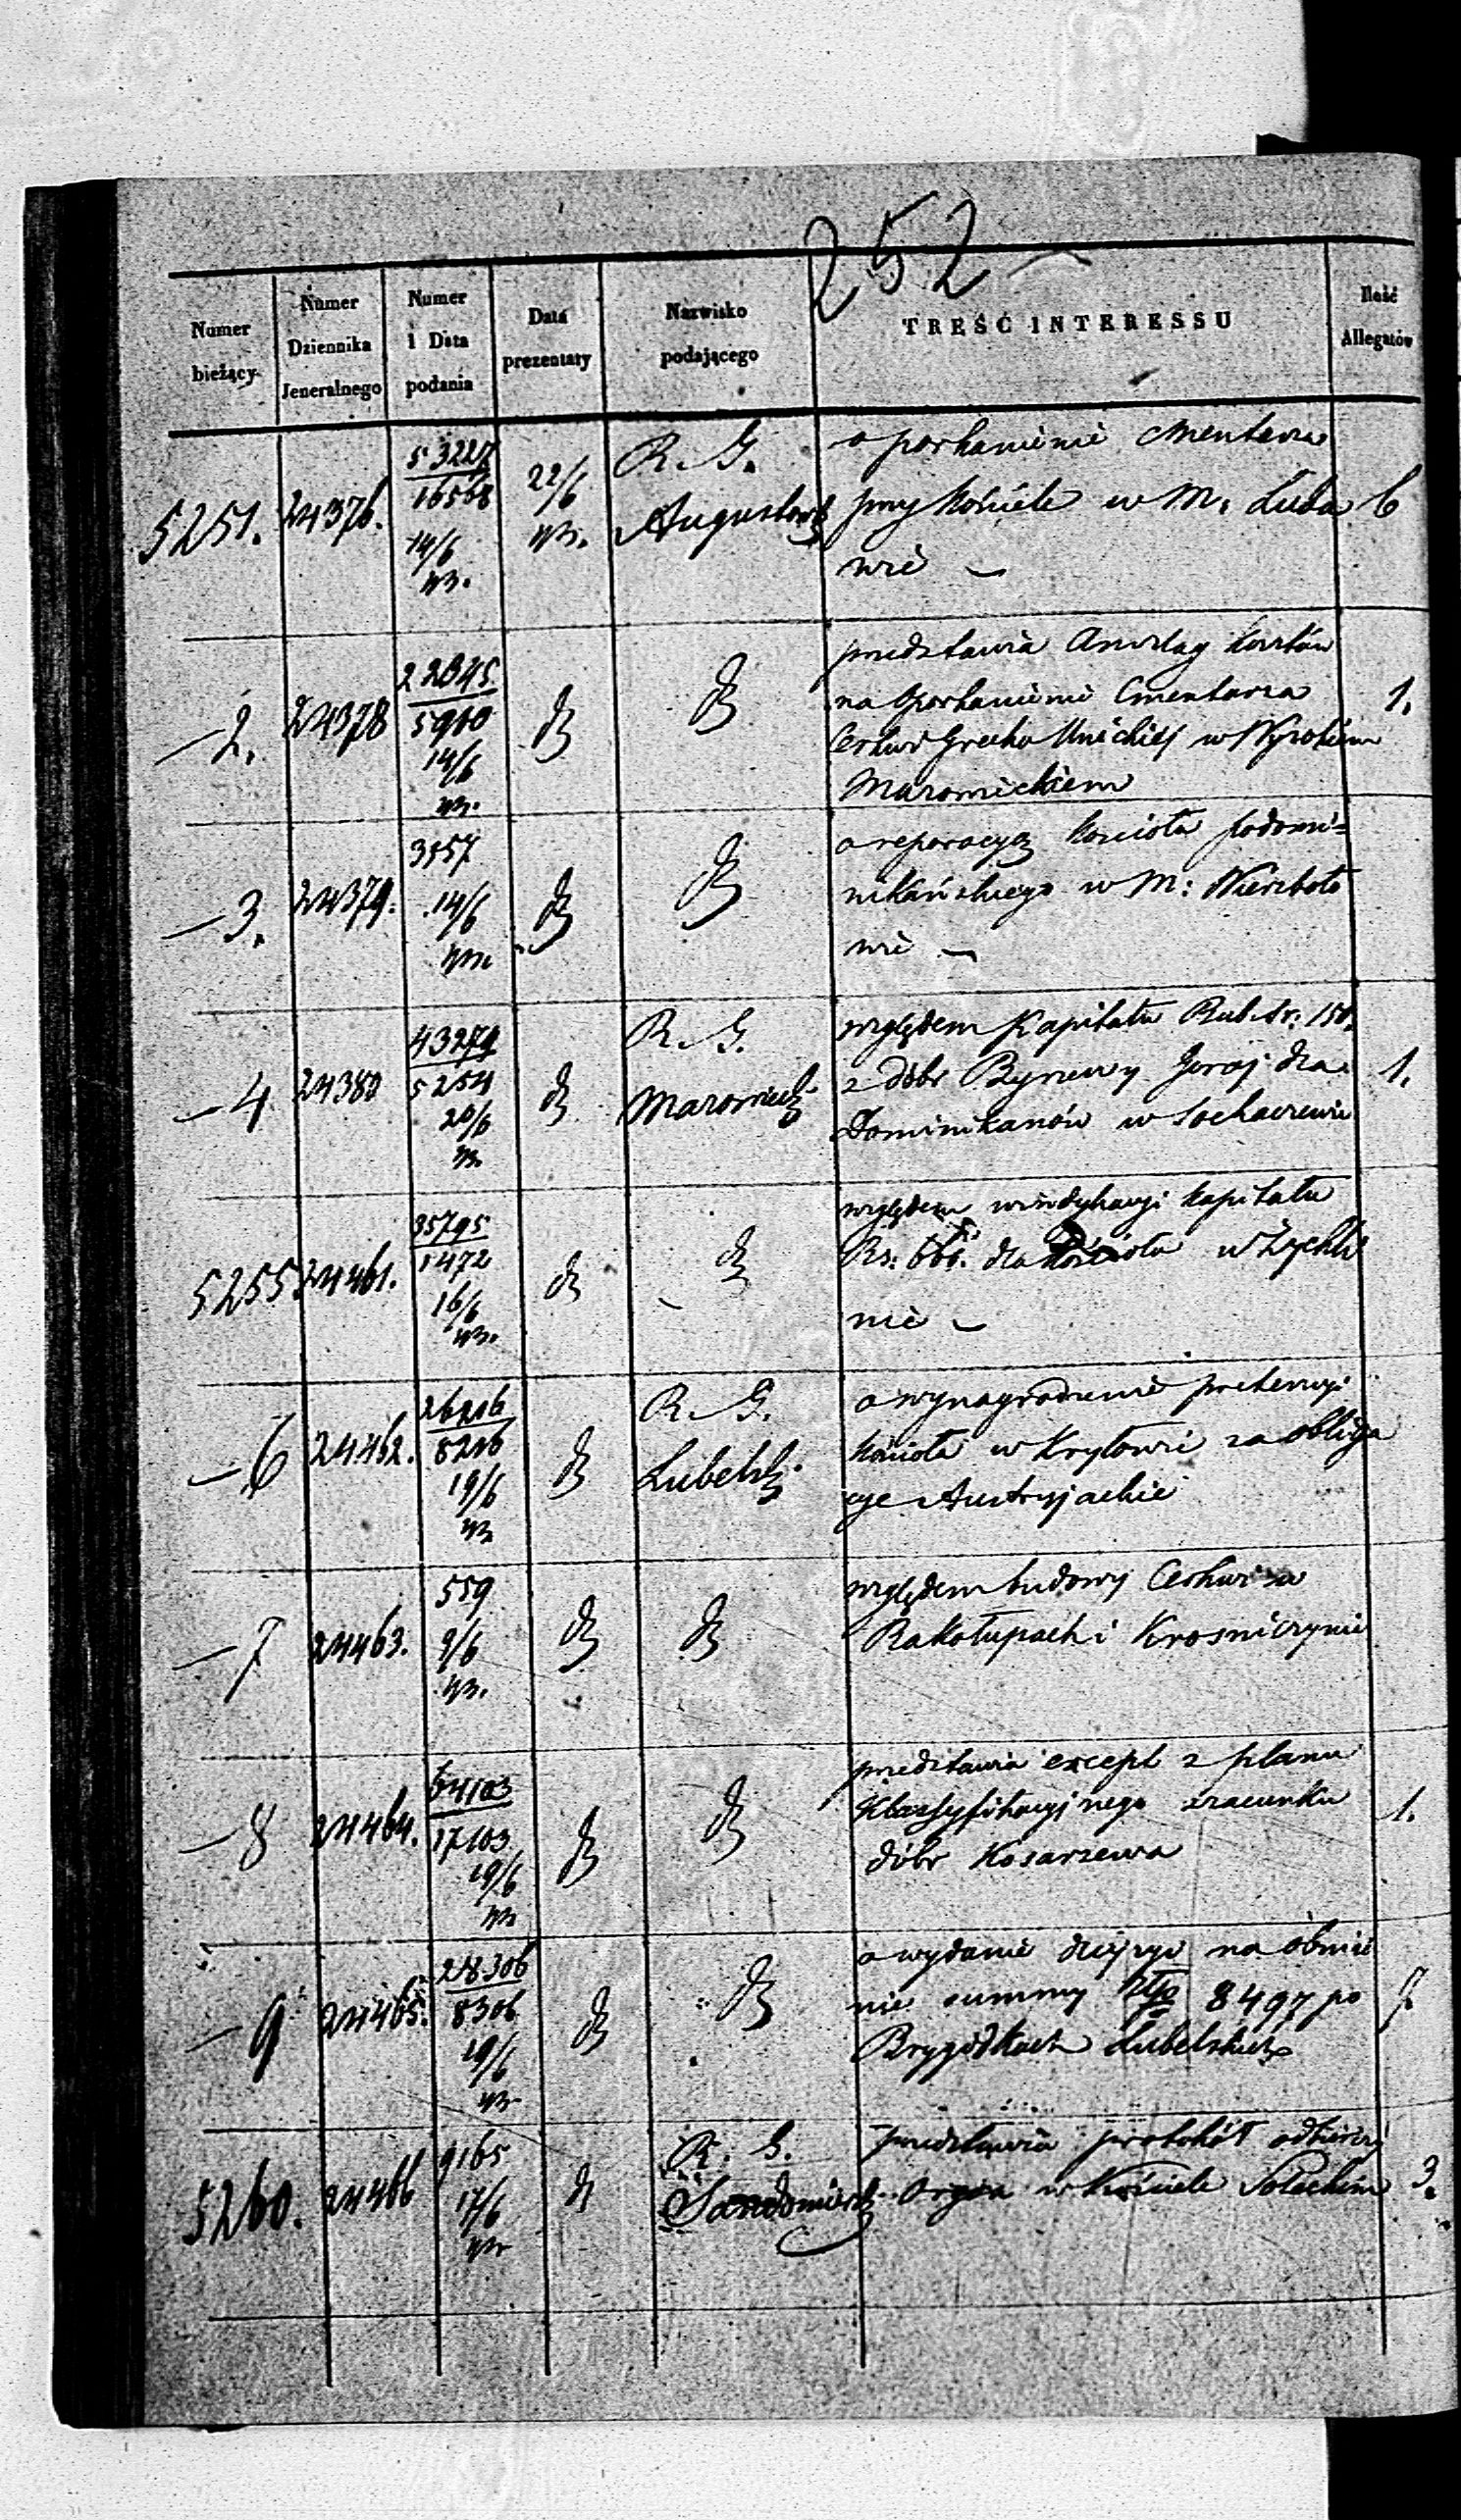 252
Numer bieżący
Numer Dziennika Jeneralnego
Numer i Data podania
Data prezentaty
Nazwisko podającego
TREŚĆ INTERESSU
Ilość Allegatów
5251. 24376. 53227/16568 14/6 22/6 R. G. August o parkanienie Cmentarza
przy Kościele w M. Luda 6
wie –
– 2. 24378 5910 14/6 przedstawia
na oparkanienie Cmentarza 1.
Cerkwi Grecko Unickiej w Wysokiem
Mazowieckiem
– 3. 24379. 3557 14/6 o reparacyą Kościoła podomi=
nikańskiego w M: Wierzboło
wie –
– 4 24380 43279/5254 20/6 R. G. Mazowiecki względem Kapitału Rub. sr: 150.
z dóbr dla 1.
Dominikanów w Sochaczewie
5255 24461. 35795/1472 16/6 względem windykacyi Kapitału
Rs: dla Kościoła w Żychli
nie –
– 6 24462. 8216 19/6 R. G. Lubelski o wynagrodzenie pretensyi
Kościoła w Kryłowie za obliga
cye Austryjackie
– 7 24463. 559 9/6 względem budowy Cerkwi w
Rakołupach i Krasniczynie
– 8 24464. 64103/17103 19/6 przedstawia z planu
Klassyfikacyjnego szacunku 1.
dóbr Kosarzewa
– 9 24465. 28306/8306 19/6 o wydanie na
nie summy 8497 po 7
Brygidkach Lubelskich
5260. 24466 9165 17/6 R. G. Sandomierski przedstawia protokół
Organ w Kościele Soleckim 3.